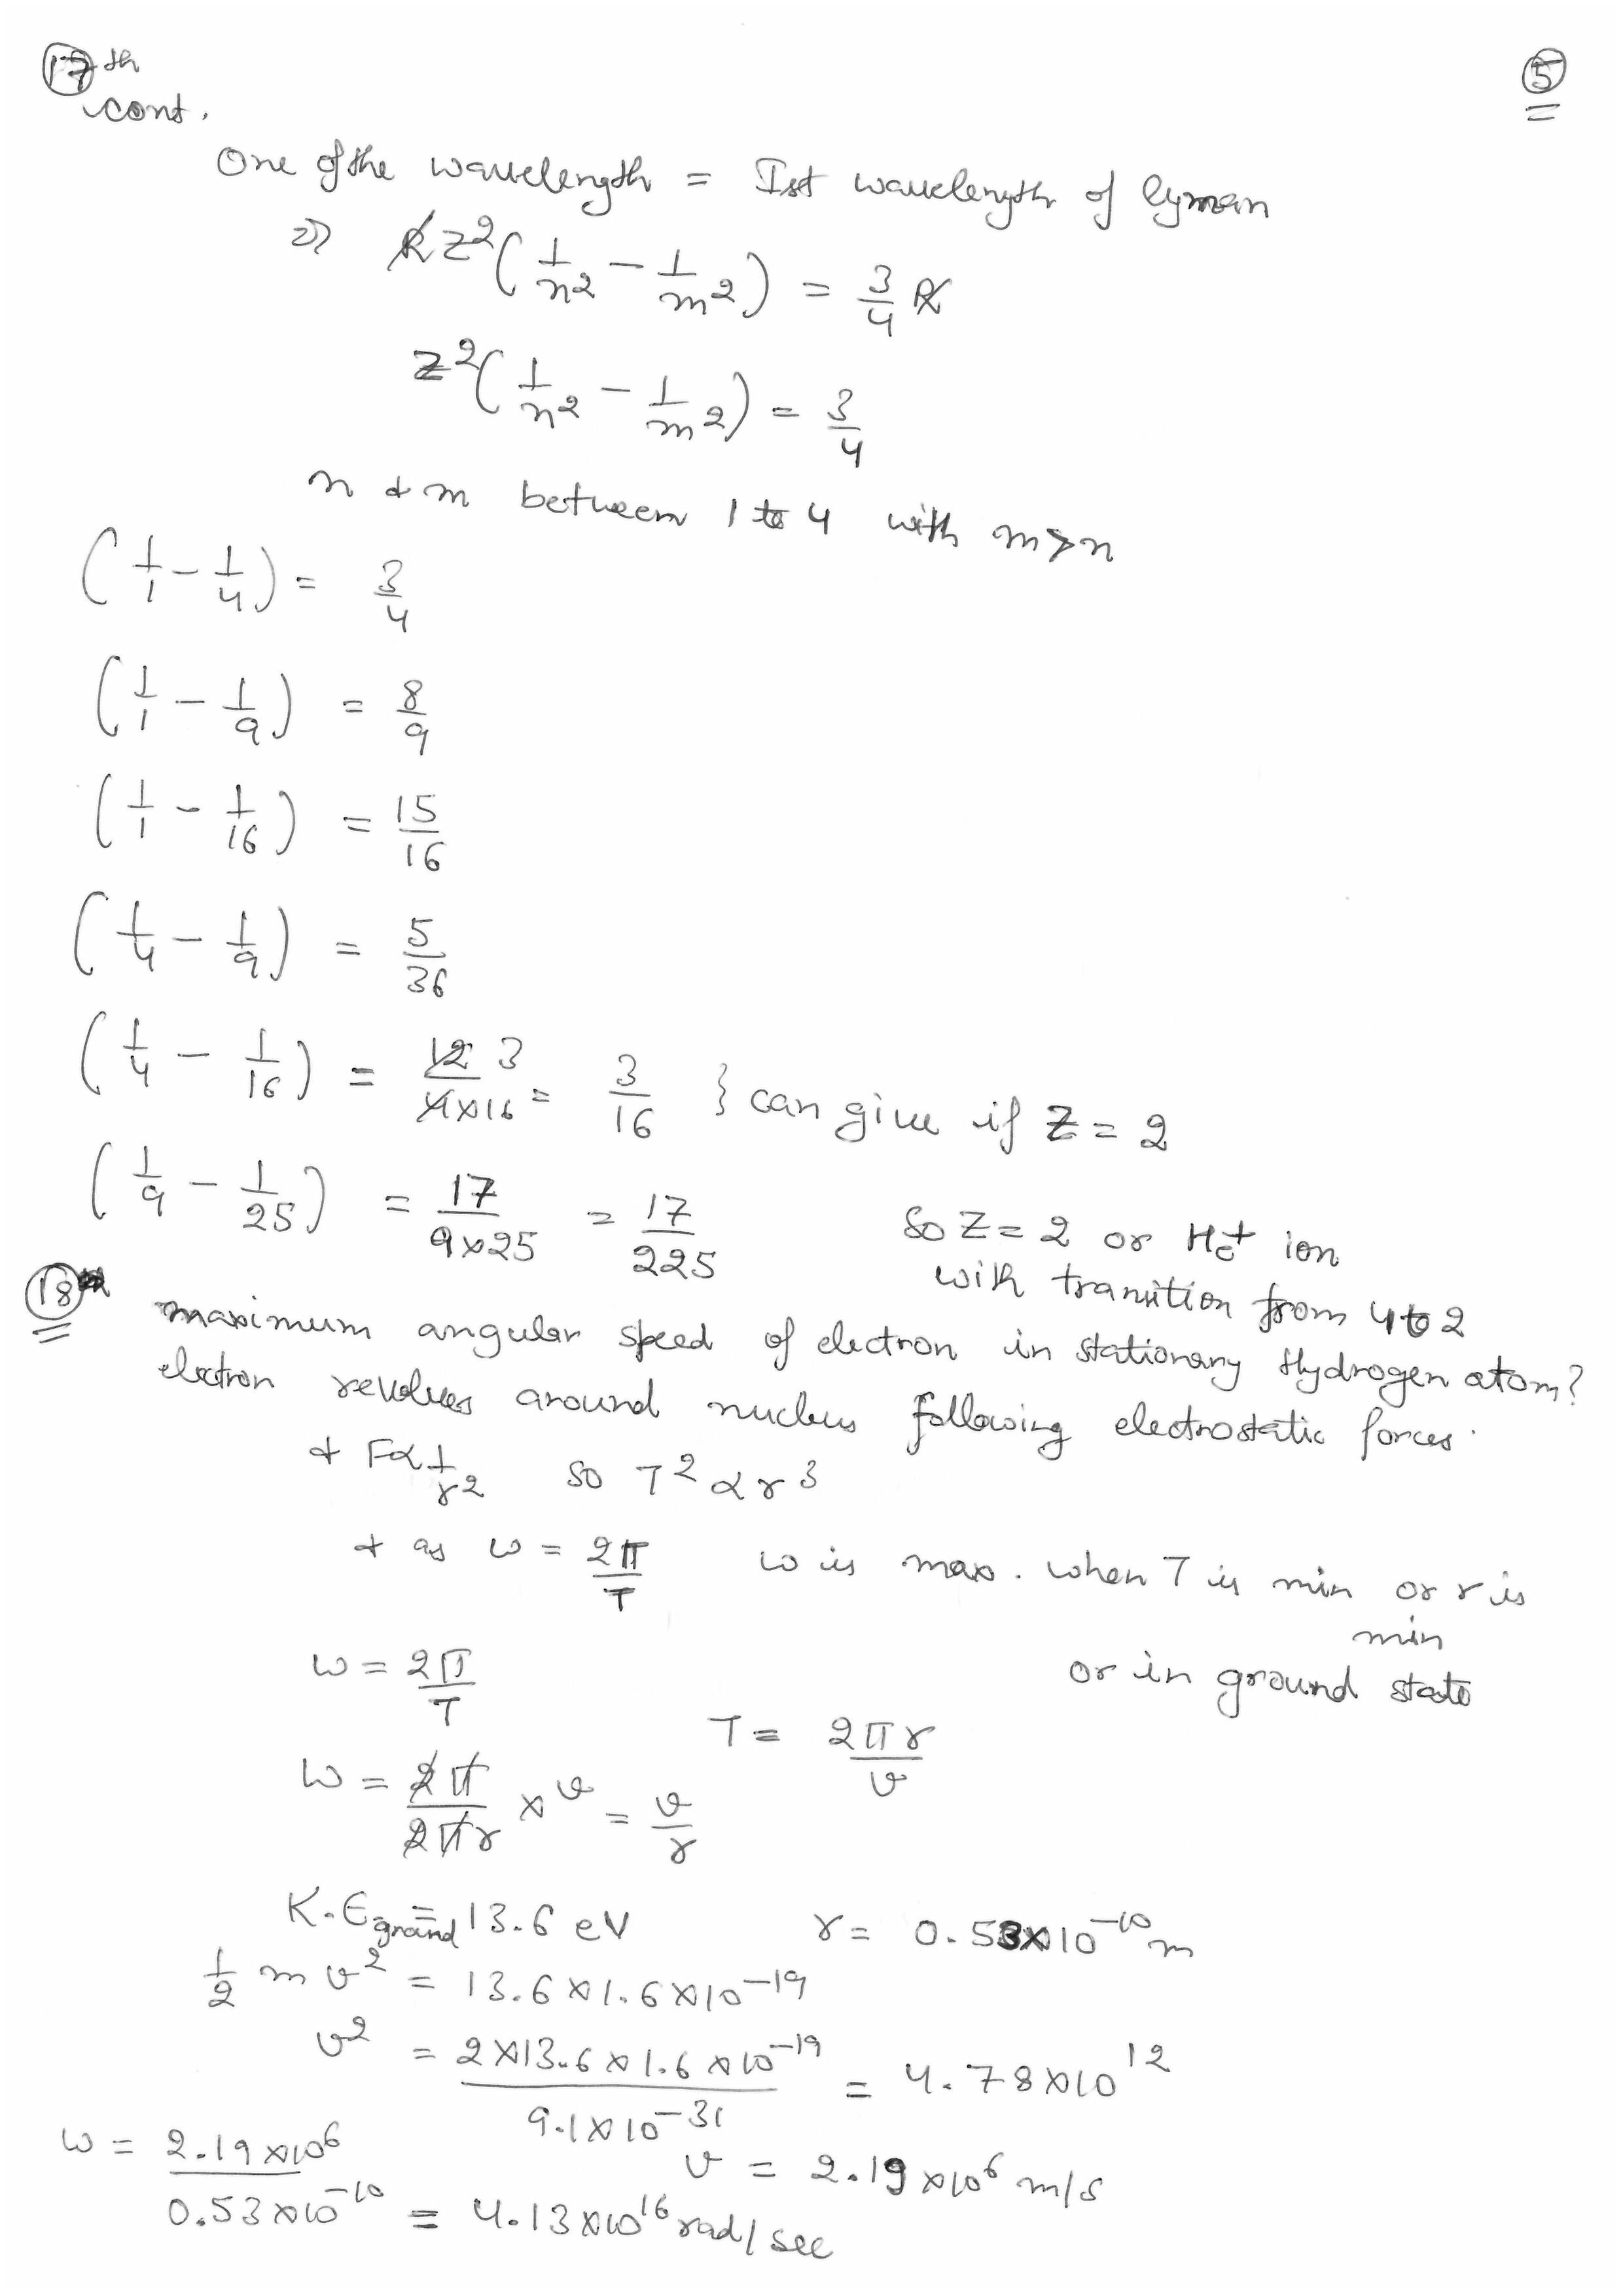 17th cont. 5
One of the wavelength = Ist wavelength of lyman
⇒ RZ²(1/n² - 1/m²) = 3/4 R
Z²(1/n² - 1/m²) = 3/4
n & m between 1 to 4 with m>n
(1/1 - 1/4) = 3/4
(1/1 - 1/9) = 8/9
(1/1 - 1/16) = 15/16
(1/4 - 1/9) = 5/36
(1/4 - 1/16) = 12 3/4×16 = 3/16 } can give if Z = 2
(1/9 - 1/25) = 17/9×25 = 17/225
So Z = 2 or He+ ion
with transition from 4 to 2
18 maximum angular speed of electron in stationary Hydrogen atom?
electron revolves around nucleus following electrostatic forces.
& F∝1/r² so T²∝r³
& as ω = 2π/T ω is max. when T is min or r is
min
or in ground state
ω = 2π/T
T = 2πr/v
ω = 2π/2πr × v = v/r
K.E ground = 13.6 eV r = 0.53×10⁻¹⁰ m
1/2 m v² = 13.6×1.6×10⁻¹⁹
v² = 2×13.6×1.6×10⁻¹⁹/9.1×10⁻³¹ = 4.78×10¹²
v = 2.19×10⁶ m/s
ω = 2.19×10⁶/0.53×10⁻¹⁰ = 4.13×10¹⁶ rad/sec